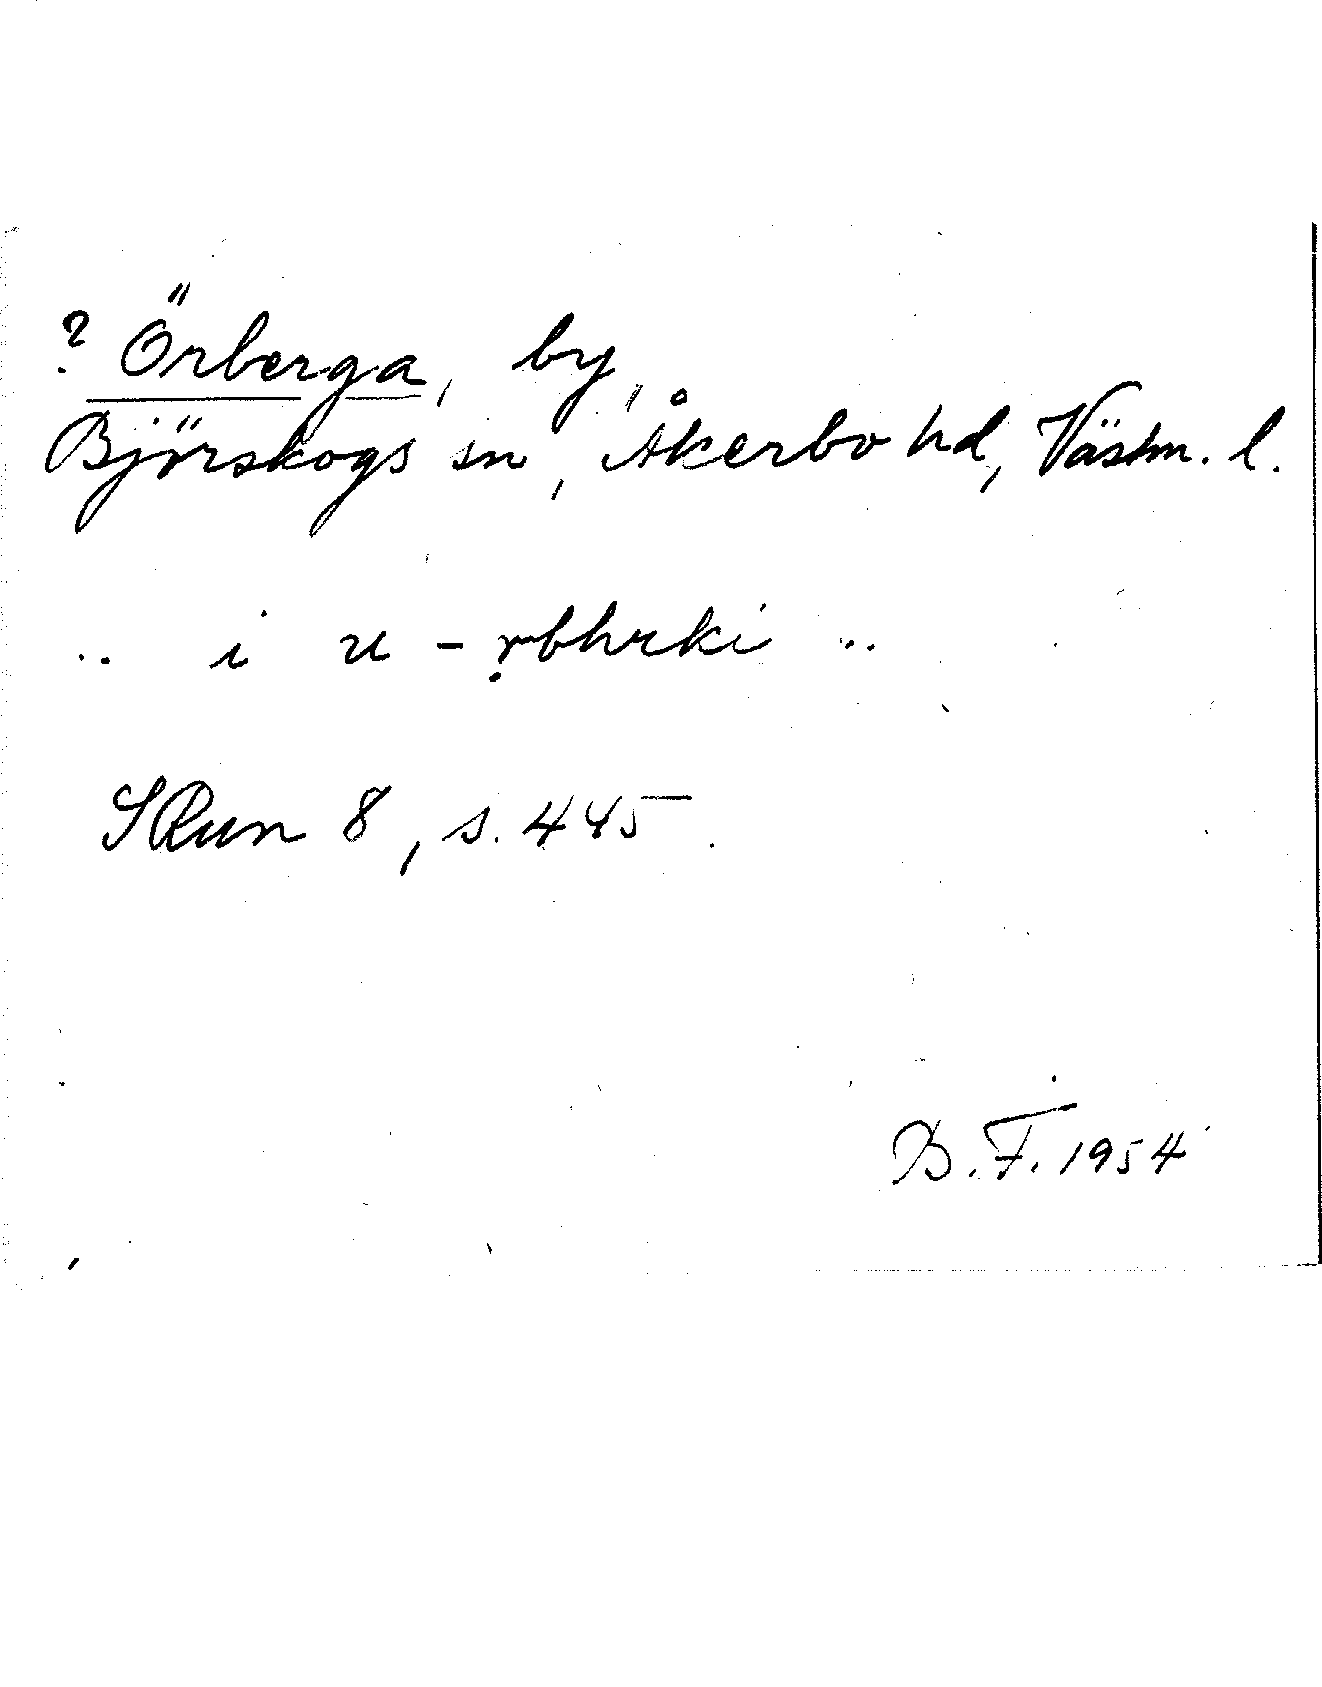 ? Örberga, by,
Björskogs sn, Åkerbo hd, Västm. l.
.. i u - ṛbhrki ..
SRun 8, s. 445.
B.F. 1954